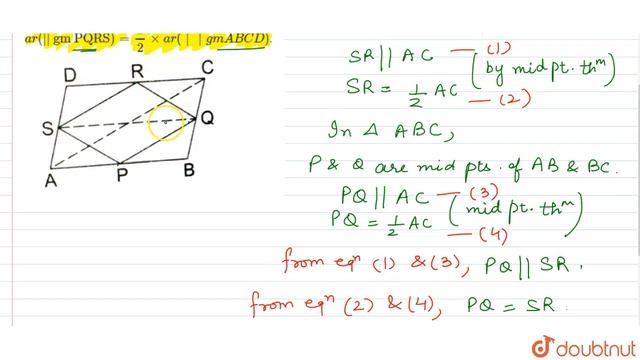 ar(|| gm PQRS) = 1/2 × ar( | | gmABCD).
D R C
S Q
A P B
SR || AC — (1)
SR = 1/2 AC — (2) (by mid pt. thm)
In △ ABC,
P & Q are mid pts. of AB & BC.
PQ || AC — (3)
PQ = 1/2 AC — (4) (mid pt. thm)
from eqn (1) & (3), PQ || SR.
from eqn (2) & (4), PQ = SR.
doubtnut